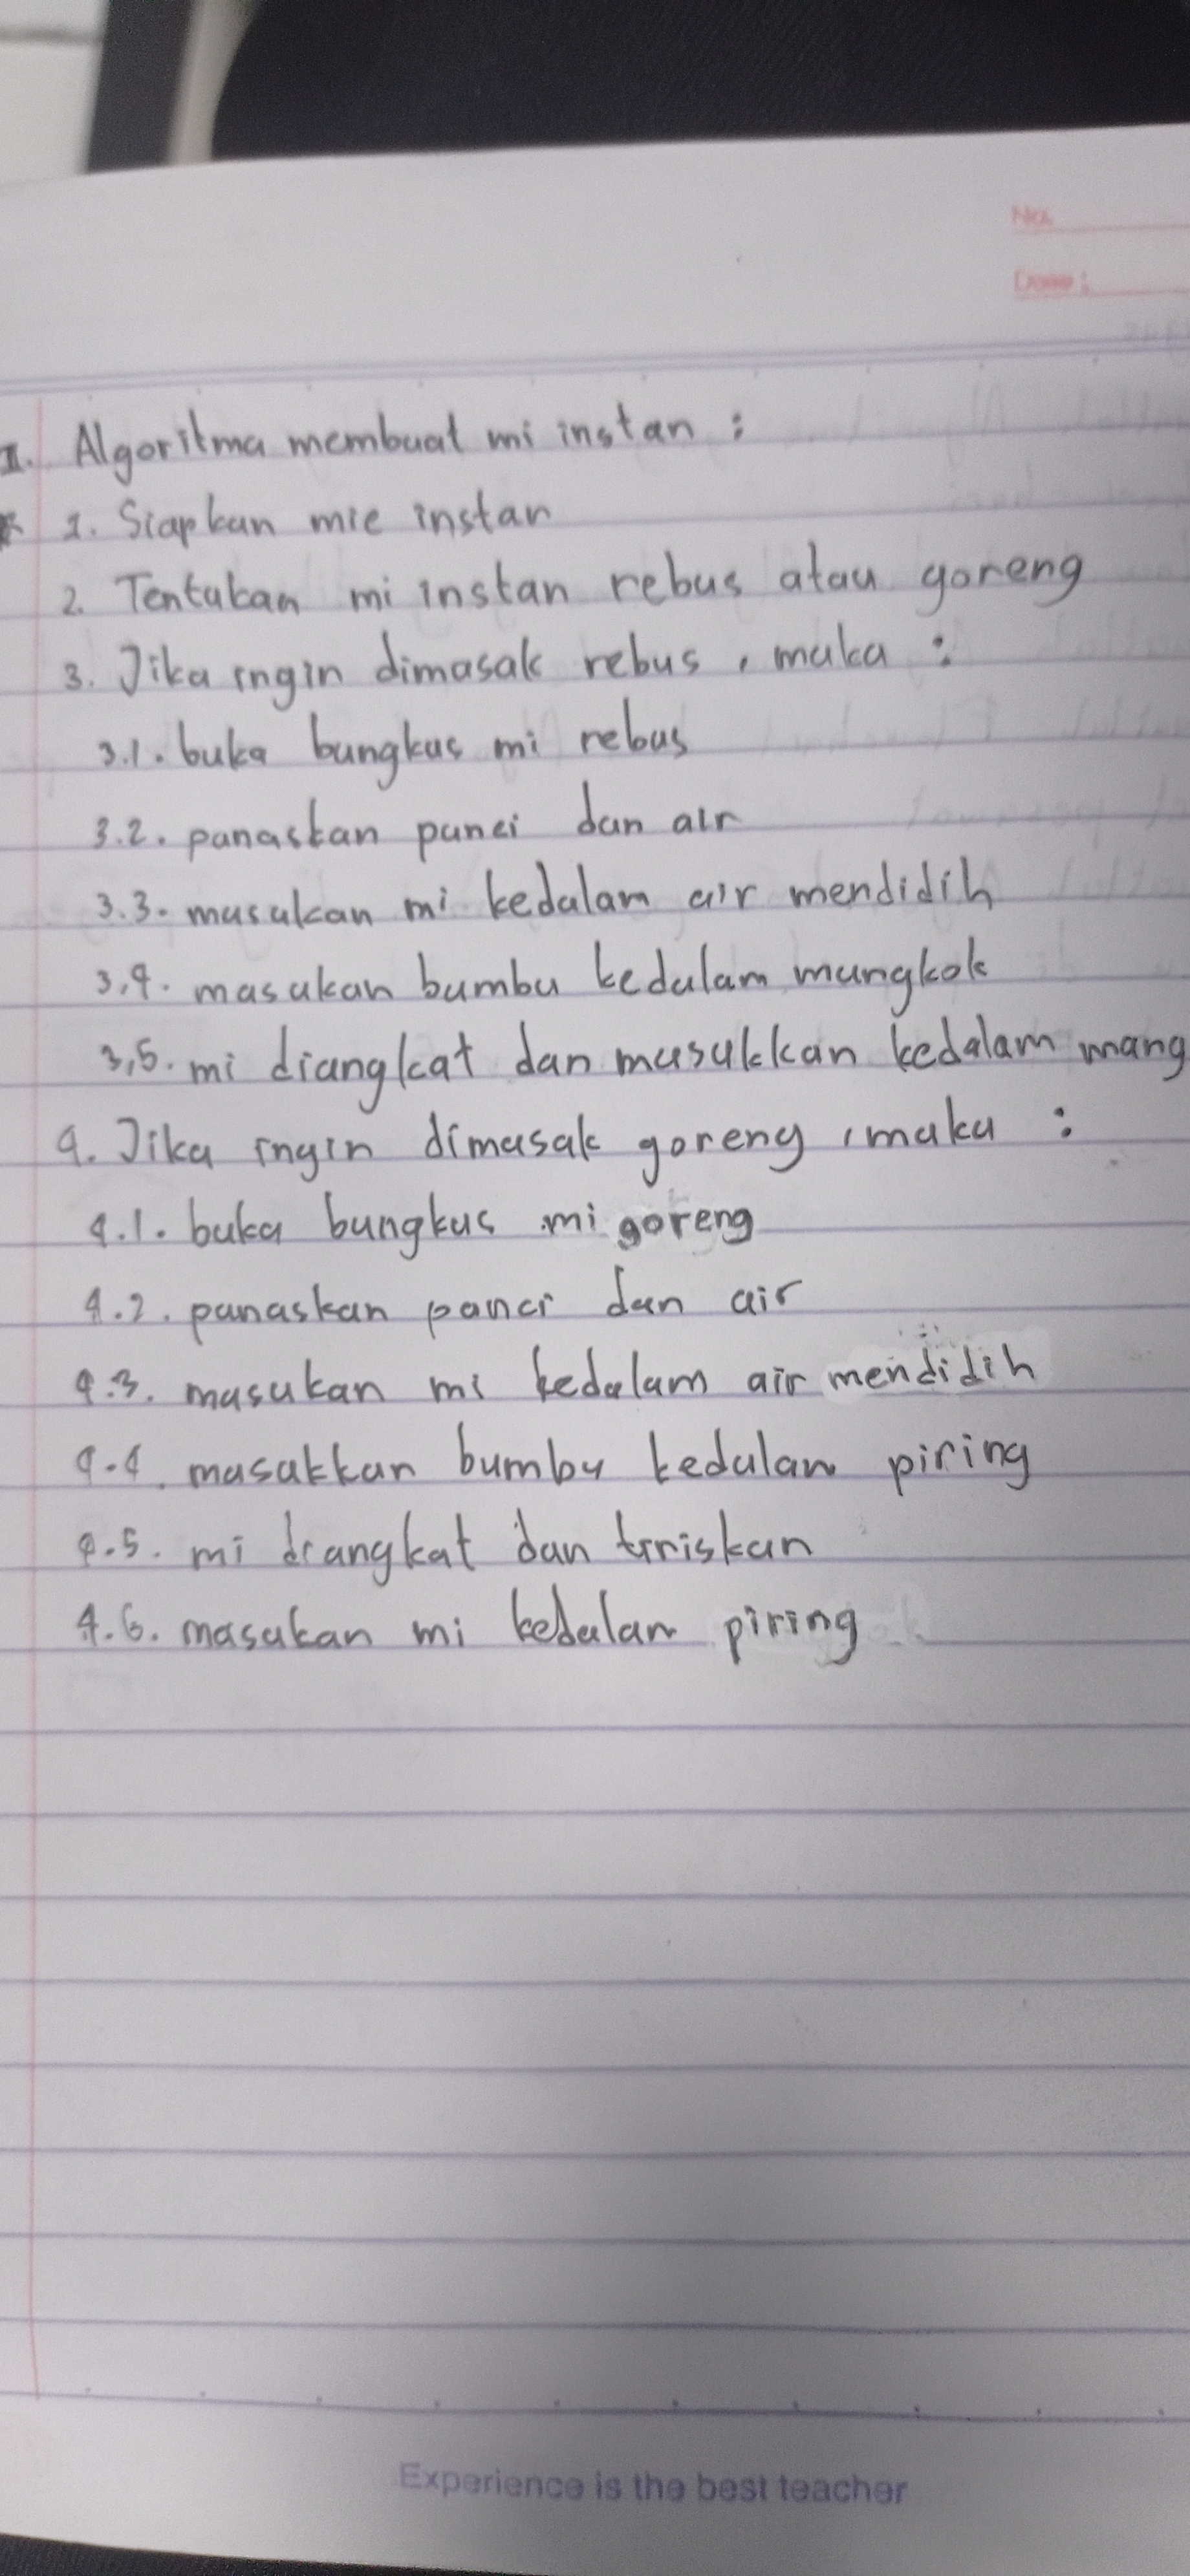 No.
Date:
I. Algoritma membuat mi instan :
1. Siapkan mie instan
2. Tentukan mi instan rebus atau goreng
3. Jika ingin dimasak rebus, maka :
3.1. buka bungkus mi rebus
3.2. panaskan panci dan air
3.3. masukan mi kedalam air mendidih
3.4. masukan bumbu kedalam mangkok
3.5. mi diangkat dan masukkan kedalam mang
4. Jika ingin dimasak goreng, maka :
4.1. buka bungkus mi goreng
4.2. panaskan panci dan air
4.3. masukan mi kedalam air mendidih
4.4. masukkan bumbu kedalam piring
4.5. mi diangkat dan tiriskan
4.6. masukan mi kedalam piring
Experience is the best teacher